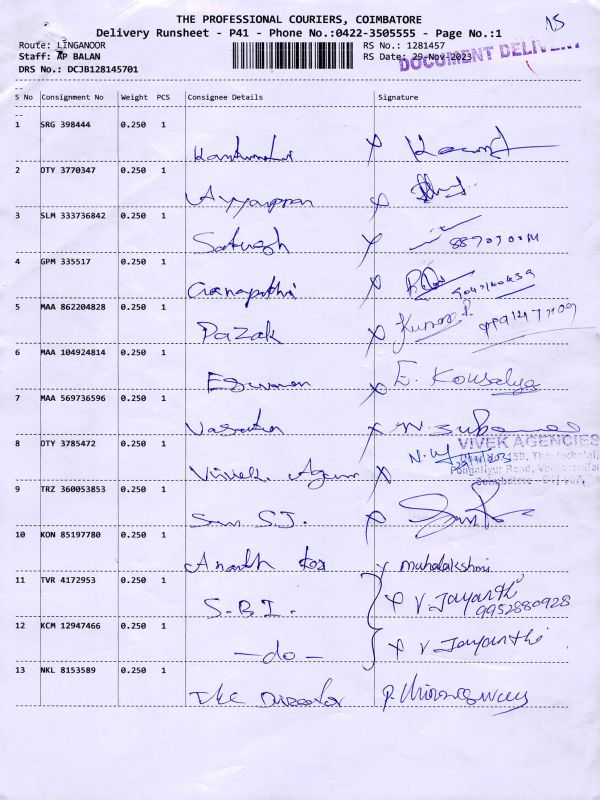 15
THE PROFESSIONAL COURIERS, COIMBATORE
Delivery Runsheet - P41 - Phone No.:0422-3505555 - Page No.:1
Route: LINGANOOR RS No.: 1281457
Staff: AP BALAN RS Date: 29-Nov-2023
DOCUMENT DELIVERY
DRS No.: DCJB128145701
S No Consignment No Weight PCS Consignee Details Signature
1 SRG 398444 0.250 1
2 OTY 3770347 0.250 1
Ayyappan
3 SLM 333736842 0.250 1
Sathish
4 GPM 335517 0.250 1
Ganapathi
5 MAA 862204828 0.250 1
Pazak
6 MAA 104924814 0.250 1
Eswaran E. Kousalya
7 MAA 569736596 0.250 1
8 OTY 3785472 0.250 1
VIVEK AGENCIES
9 TRZ 360053853 0.250 1
10 KON 85197780 0.250 1
Mahalakshmi
11 TVR 4172953 0.250 1
S.B.I. V Jayanthi
9952880928
12 KCM 12947466 0.250 1
-do- V Jayanthi
13 NKL 8153589 0.250 1
The Director